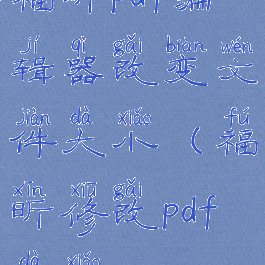 福昕pdf编
jí qì gǎi biàn wén
辑器改变文
jiàn dà xiǎo fú
件大小(福
xīn xiū gǎi
昕修改pdf
dà xiǎo